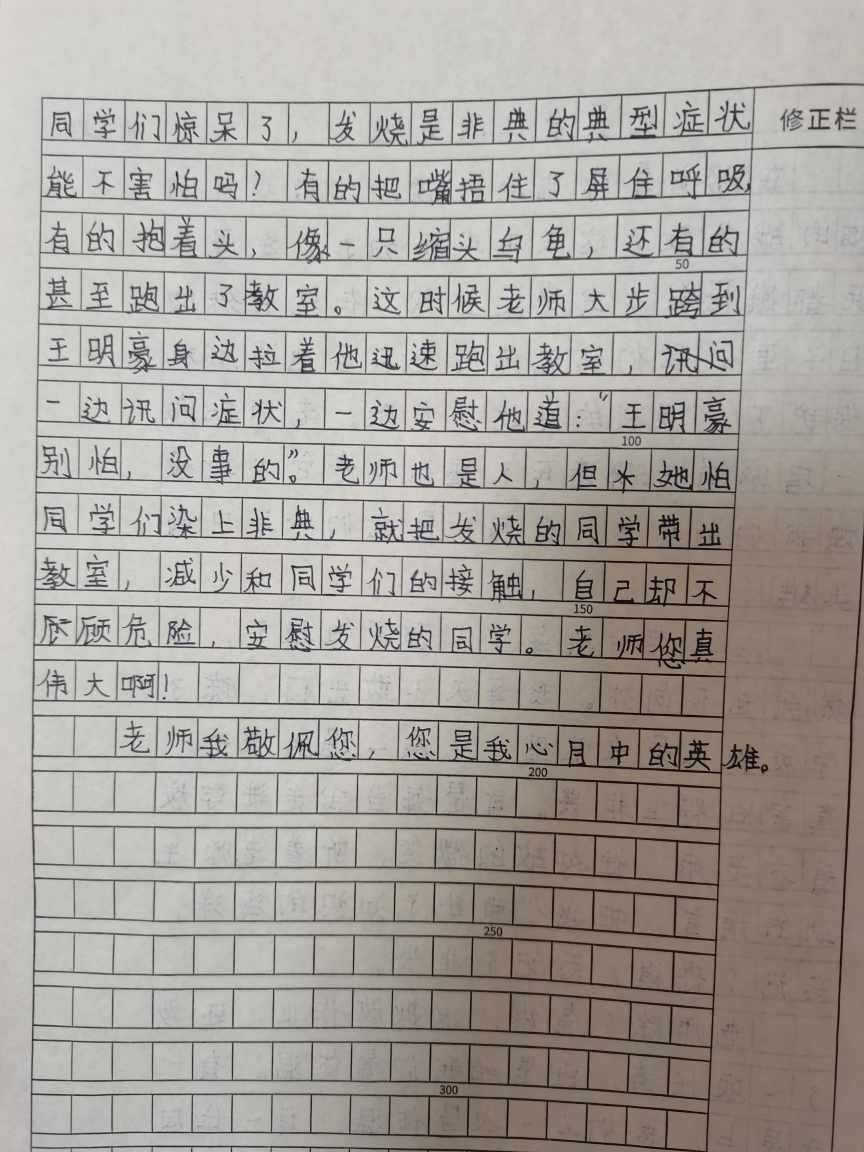 同学们惊呆了，发烧是非典的典型症状 修正栏
能不害怕吗？有的把嘴捂住了屏住呼吸，
有的抱着头，像一只缩头乌龟，还有的
50
甚至跑出了教室。这时候老师大步跨到
王明豪身边拉着他迅速跑出教室，
一边讯问症状，一边安慰他道：“王明豪
100
别怕，没事的”。老师也是人，但她怕
同学们染上非典，就把发烧的同学带出
教室，减少和同学们的接触，自己却不
150
顾危险，安慰发烧的同学。老师您真
伟大啊！
老师我敬佩您，您是我心目中的英雄。
200
250
300